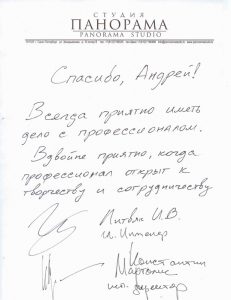 СТУДИЯ
ПАНОРАМА
PANORAMA STUDIO
Спасибо, Андрей!
Всегда приятно иметь
дело с профессионалом.
Вдвойне приятно, когда
профессионал открыт к
творчеству и сотрудничеству
Литвяк И.В.
Константин